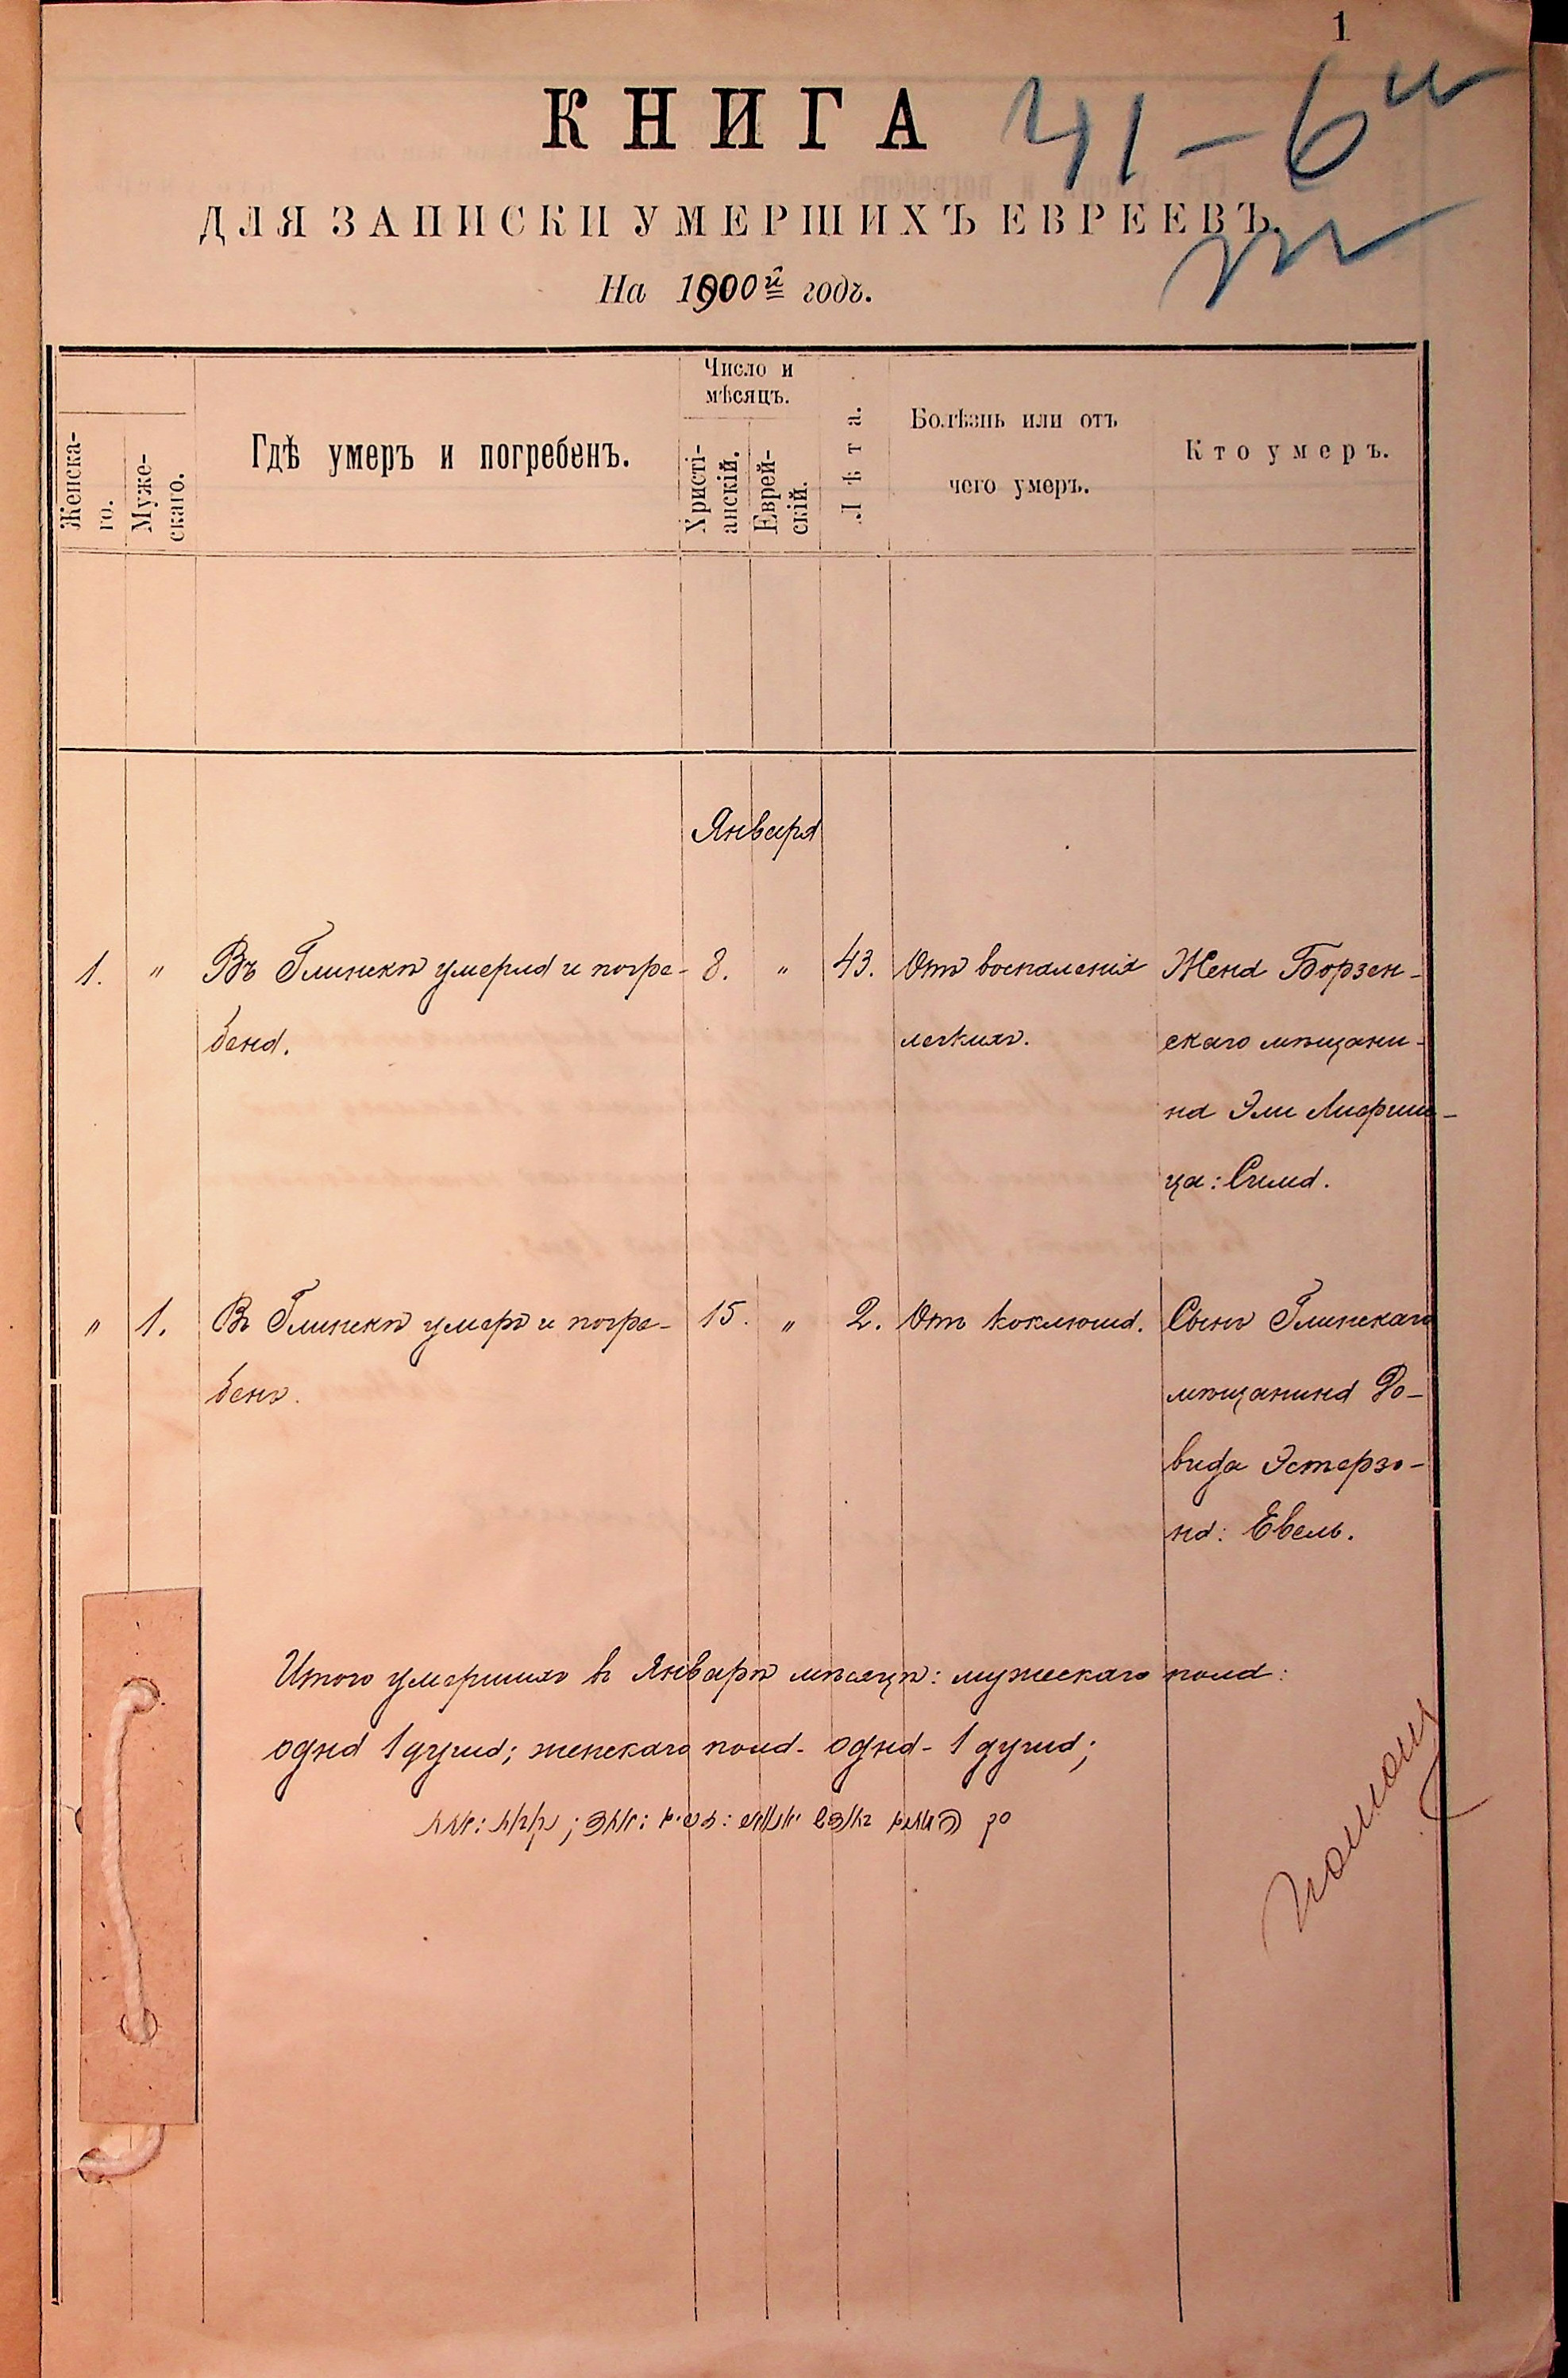 1
КНИГА
41-6
ДЛЯ ЗАПИСКИ УМЕРШИХЪ ЕВРЕЕВЪ.
На 1900й годъ.
Женска-
го.
Муже-
скаго.
Гдѣ умеръ и погребенъ.
Число и
мѣсяцъ.
Христі-
анскій.
Еврей-
скій.
Лѣта.
Болѣзнь или отъ
чего умеръ.
Кто умеръ.
Января
1. " Въ Глинскѣ умерла и погре- 8. " 43. Отъ воспаленія Жена Борзен-
бена. легкихъ. скаго мѣщани-
на Эли
ца: Сима.
" 1. Въ Глинскѣ умеръ и погре- 15. " 2. Отъ коклюша. Сынъ Глинскаго
бенъ. мѣщанина До-
вида Эстерзо-
на: Евель.
Итого умершихъ въ Январѣ мѣсяцѣ: мужескаго пола:
одна 1 душа; женскаго пола - одна - 1 душа;